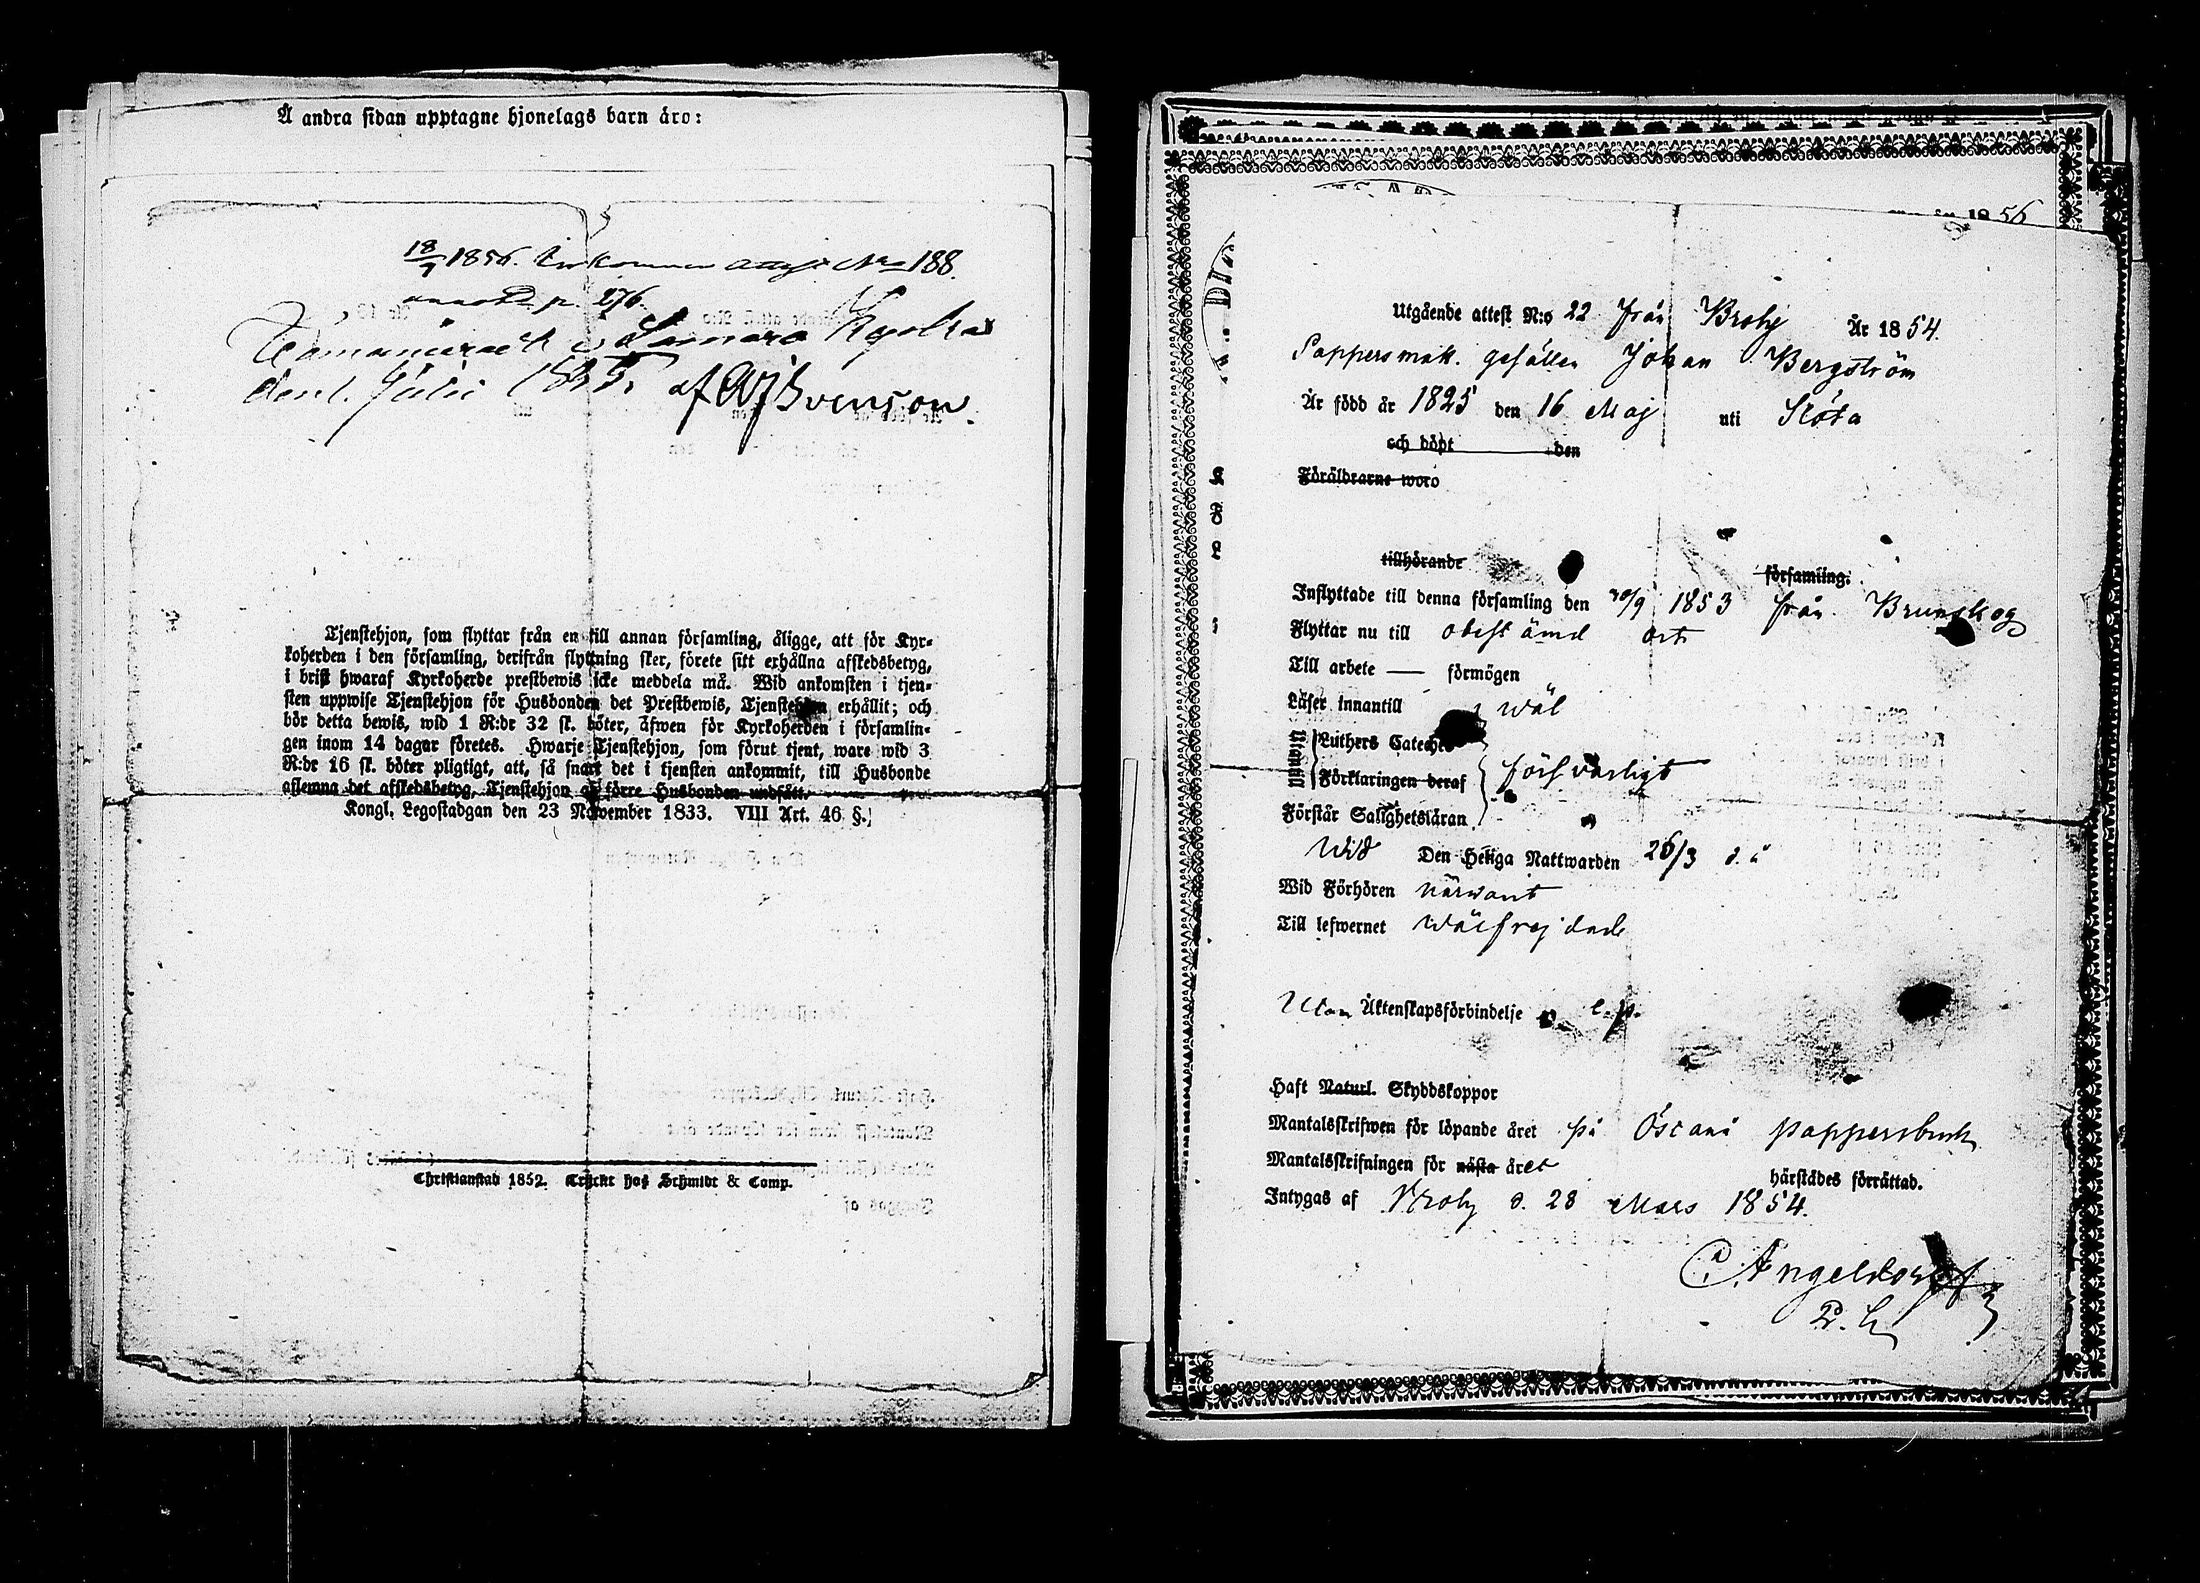 Å andra sidan upptagne hjonelags barn äro:
18/7 1856. Inkommen attest No 188.
p. 276.
Samara Kyrka
den 1. Julii 1855. af AJ Svenson
Tjenstehjon, som flyttar från en till annan församling, åligge, att för Kyr-
koherden i den församling, derifrån flyttning sker, förete sitt erhållna afskedsbetyg,
i brist hwaraf Kyrkoherde prestbewis icke meddela må. Wid ankomsten i tjen-
sten uppwise Tjenstehjon för Husbonden det Prestbewis, Tjenstehjon erhållit; och
bör detta bewis, wid 1 R:dr 32 sk. böter, äfwen för Kyrkoherden i församlin-
gen inom 14 dagar företes. Hwarje Tjenstehjon, som förut tjent, ware wid 3
R:dr 16 sk. böter pligtigt, att, så snart det i tjensten ankommit, till Husbonde
aflemna det afskedsbetyg, Tjenstehjon af förre Husbonden undfått.
Kongl. Legostadgan den 23 November 1833. VIII Art. 46 §.)
Christianstad 1852. Tryckt hos Schmidt & Comp.
18 56
Utgående attest N:o 22 från Broby År 1854.
Pappersmak. gesällen Johan Bergström
Är född år 1825 den 16 Maj uti Sköta
och döpt den
Föräldrarne woro
tillhörande församling.
Inflyttade till denna församling den 30/9 1853 från Brunskog
Flyttar nu till obestämd ort
Till arbete — förmögen
Läser innantill wäl
Utantill Luthers Cateches
Förklaringen deraf försvarligt
Förstår Salighetsläran
Wid Den Heliga Nattwarden 26/3 d. å
Wid Förhören närwarit
Till lefwernet wälfrejdade
Utan Äktenskapsförbindelse
Haft Naturl. Skyddskoppor
Mantalsskrifwen för löpande året på Östanå pappersbruk
Mantalsskrifningen för nästa året härstädes förrättad.
Intygas af Broby d. 28 Mars 1854.
C. Angeldorff